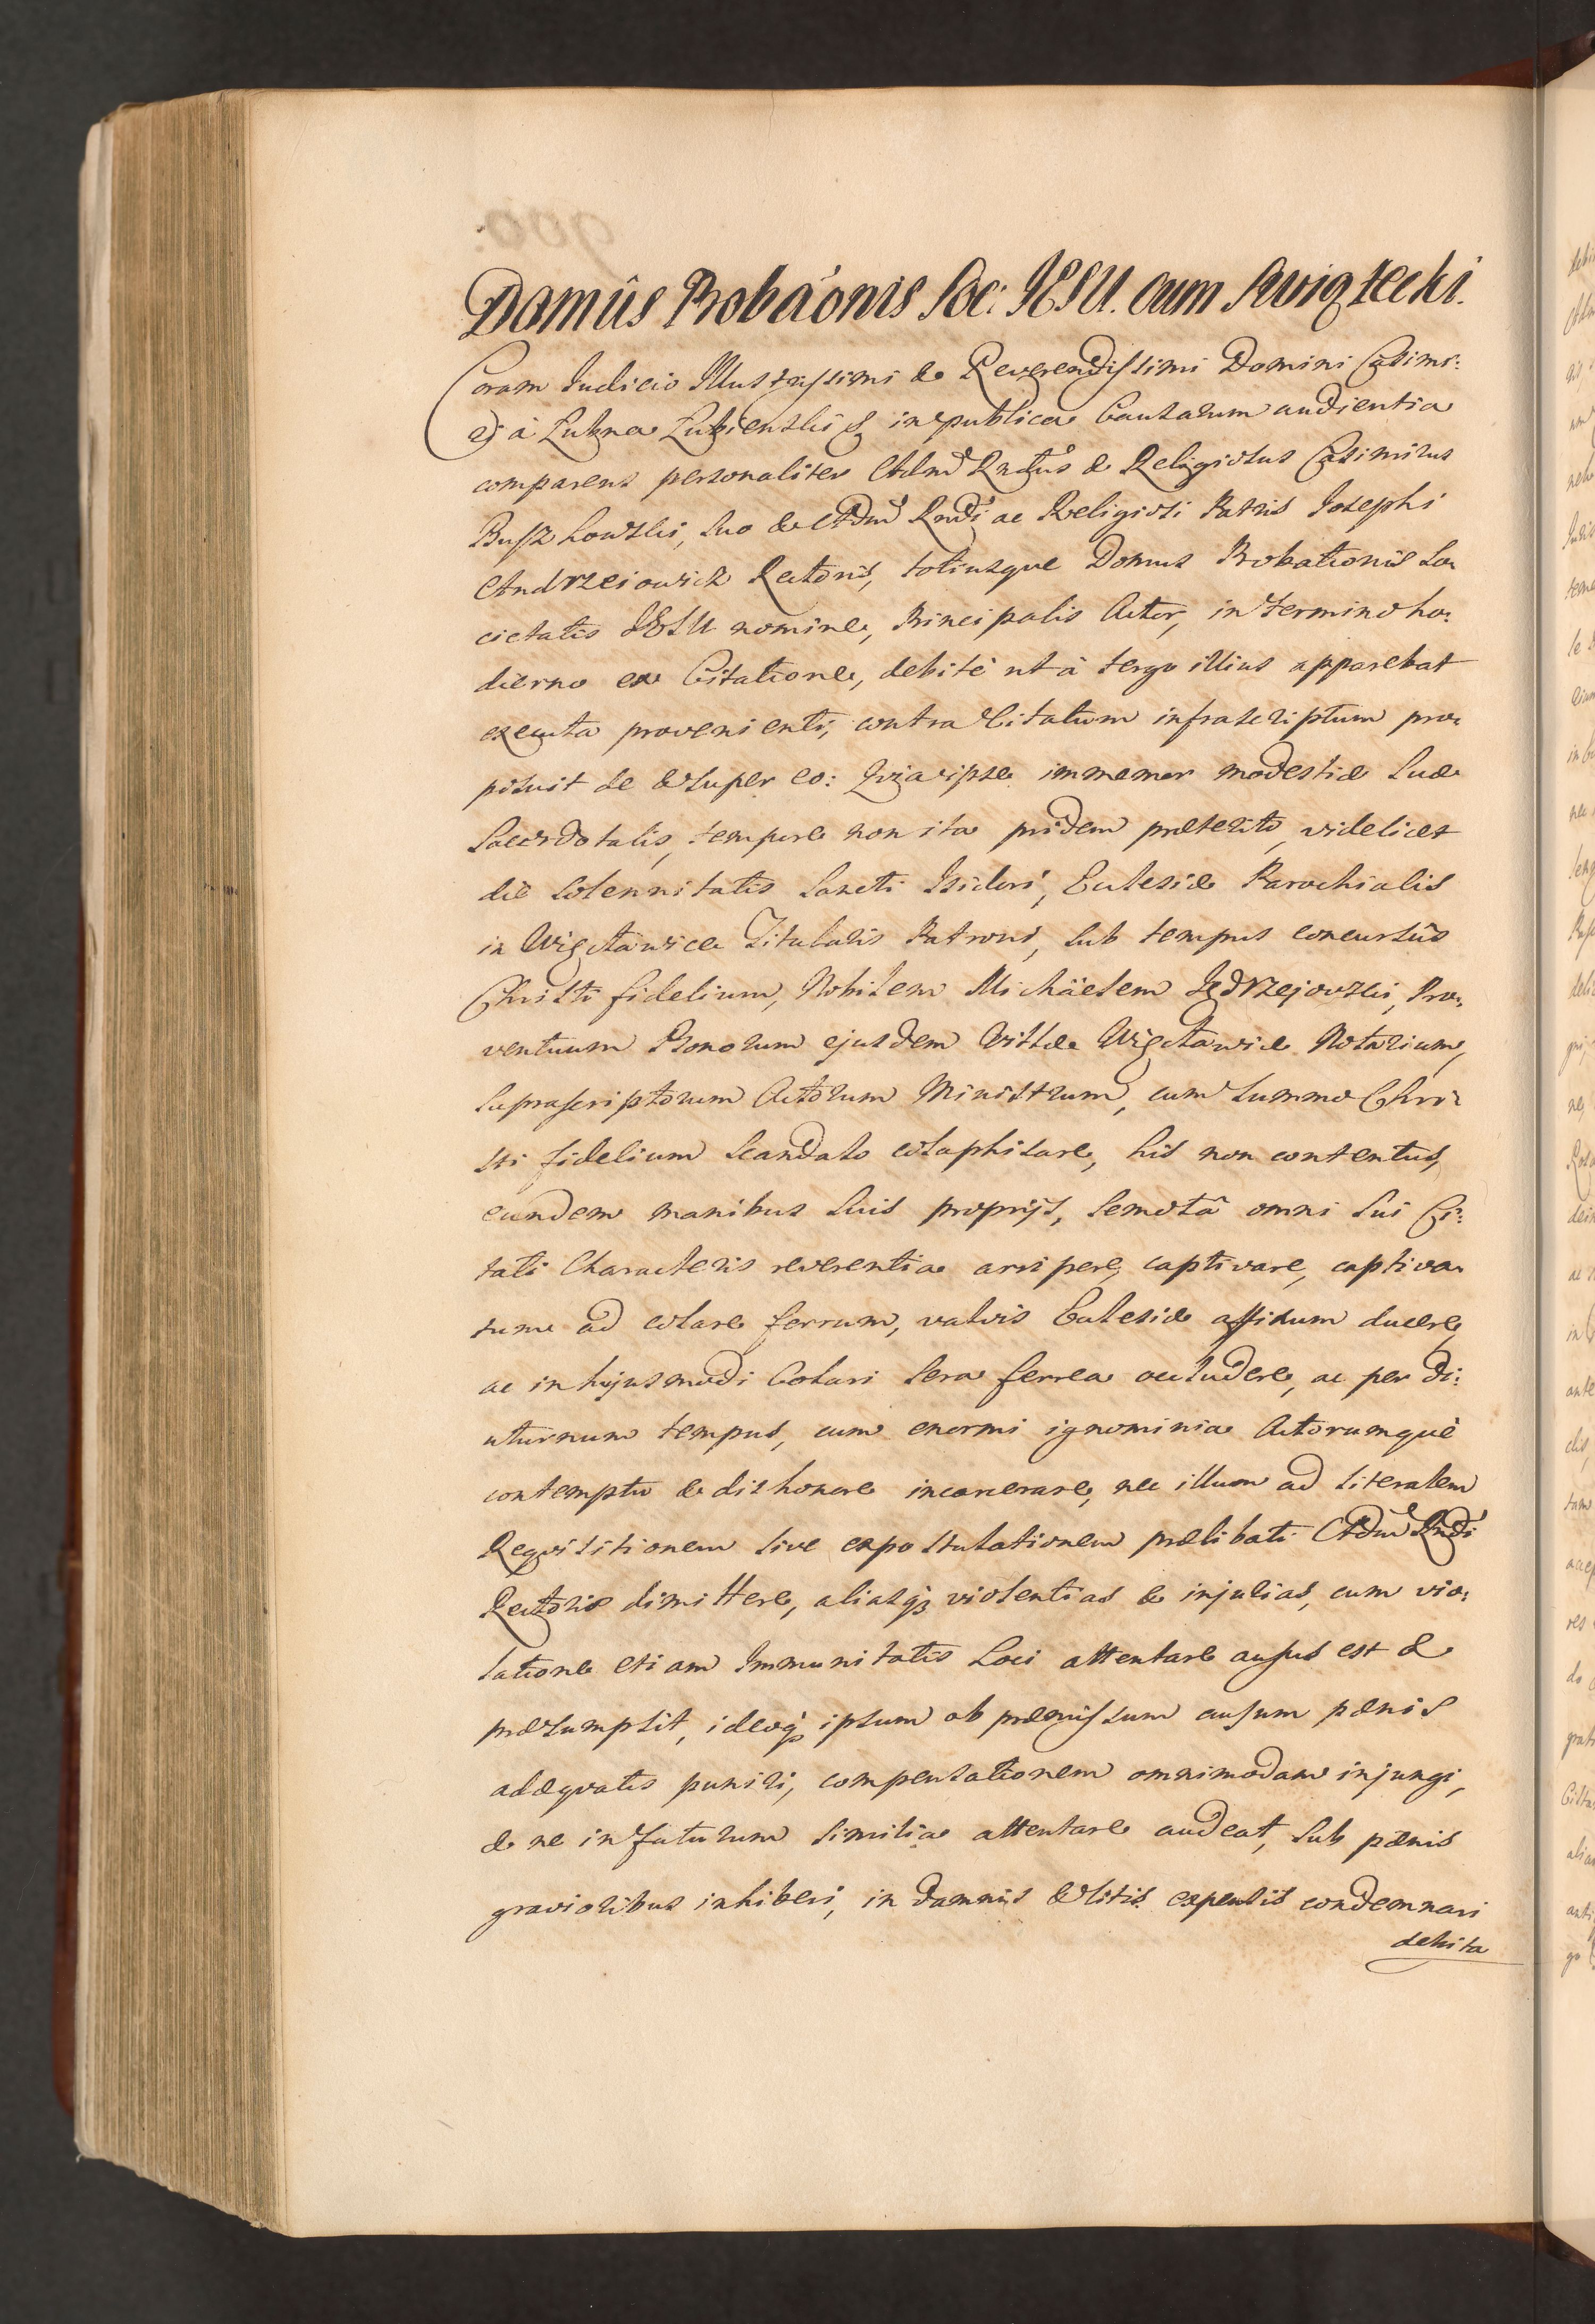 Domûs Probaõnis Soc: JESU. cum Swiątecki.
Coram Judicio Illustrissimi & Reverendissimi Domini Casimi:
ri à Lubna Lubienski & in publica Causarum audientia
comparens personaliter Admd Rndus & Religiosus Casimirus
Buszkowski, suo & Admd Rndi ac Religiosi Patris Josephi
Andrzeiowicz Rectoris, totiusque Domus Probationis So:
cietatis JESU nomine, Principalis Actor, in termino ho:
dierno ex Citatione, debitè ut à tergo illius apparebat
executa provenienti, contra Citatum infrascriptum pro:
posuit de & super eo: Quia ipse immemor modestiæ suæ
Sacerdotalis, tempore non ita pridem præterito, videlicet
die Solennitatis Sancti Isidori, Ecclesiæ Parochialis
in Więcławice Titularis Patroni, sub tempus concursûs
Christi fidelium, Nobilem Michäelem Jędrzejowski, Pro:
ventuum Bonorum ejusdem Villæ Więcławice Notarium,
suprascriptorum Actorum Ministrum, cum summo Chri:
sti fidelium scandalo colaphisare, his non contentus,
eundem manibus suis proprijs, semotâ omni sui Ci:
tati Characteris reverentia arripere, captivare, captiva:
tum ad colare ferrum, valvis Ecclesiæ affixum ducere,
ac in hujusmodi Colari sera ferrea occludere, ac per di:
uturnum tempus, cum enormi ignominia Actorumque
contemptu & dishonore incarcerare, nec illum ad literalem
Reqvisitionem sive expostulationem prælibati Admd Rndi
Rectoris dimittere, aliasq; violentias & injurias, cum vio:
latione etiam Immunitatis Loci attentare ausus est &
præsumpsit, ideoq; ipsum ob præmissum ausum pænis
adæqvatis puniri, compensationem omnimodam injungi,
& ne in futurum similia attentare audeat, sub pænis
gravioribus inhiberi, in damnis & litis expensis condemnari
debita